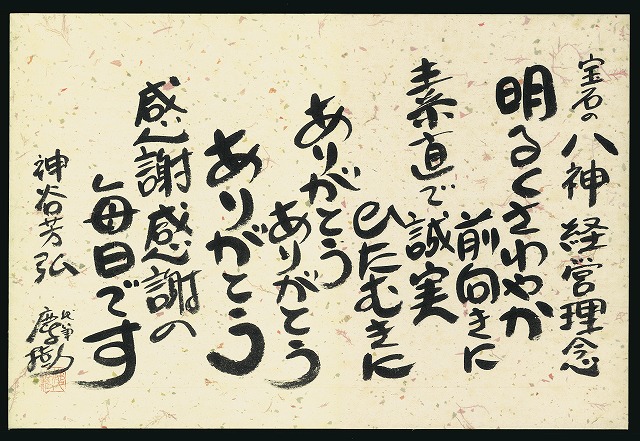 宝石の八神経営理念
明るくさわやか
前向きに
素直で誠実
ひたむきに
ありがとう
ありがとう
ありがとう
感謝感謝の
毎日です
神谷芳弘